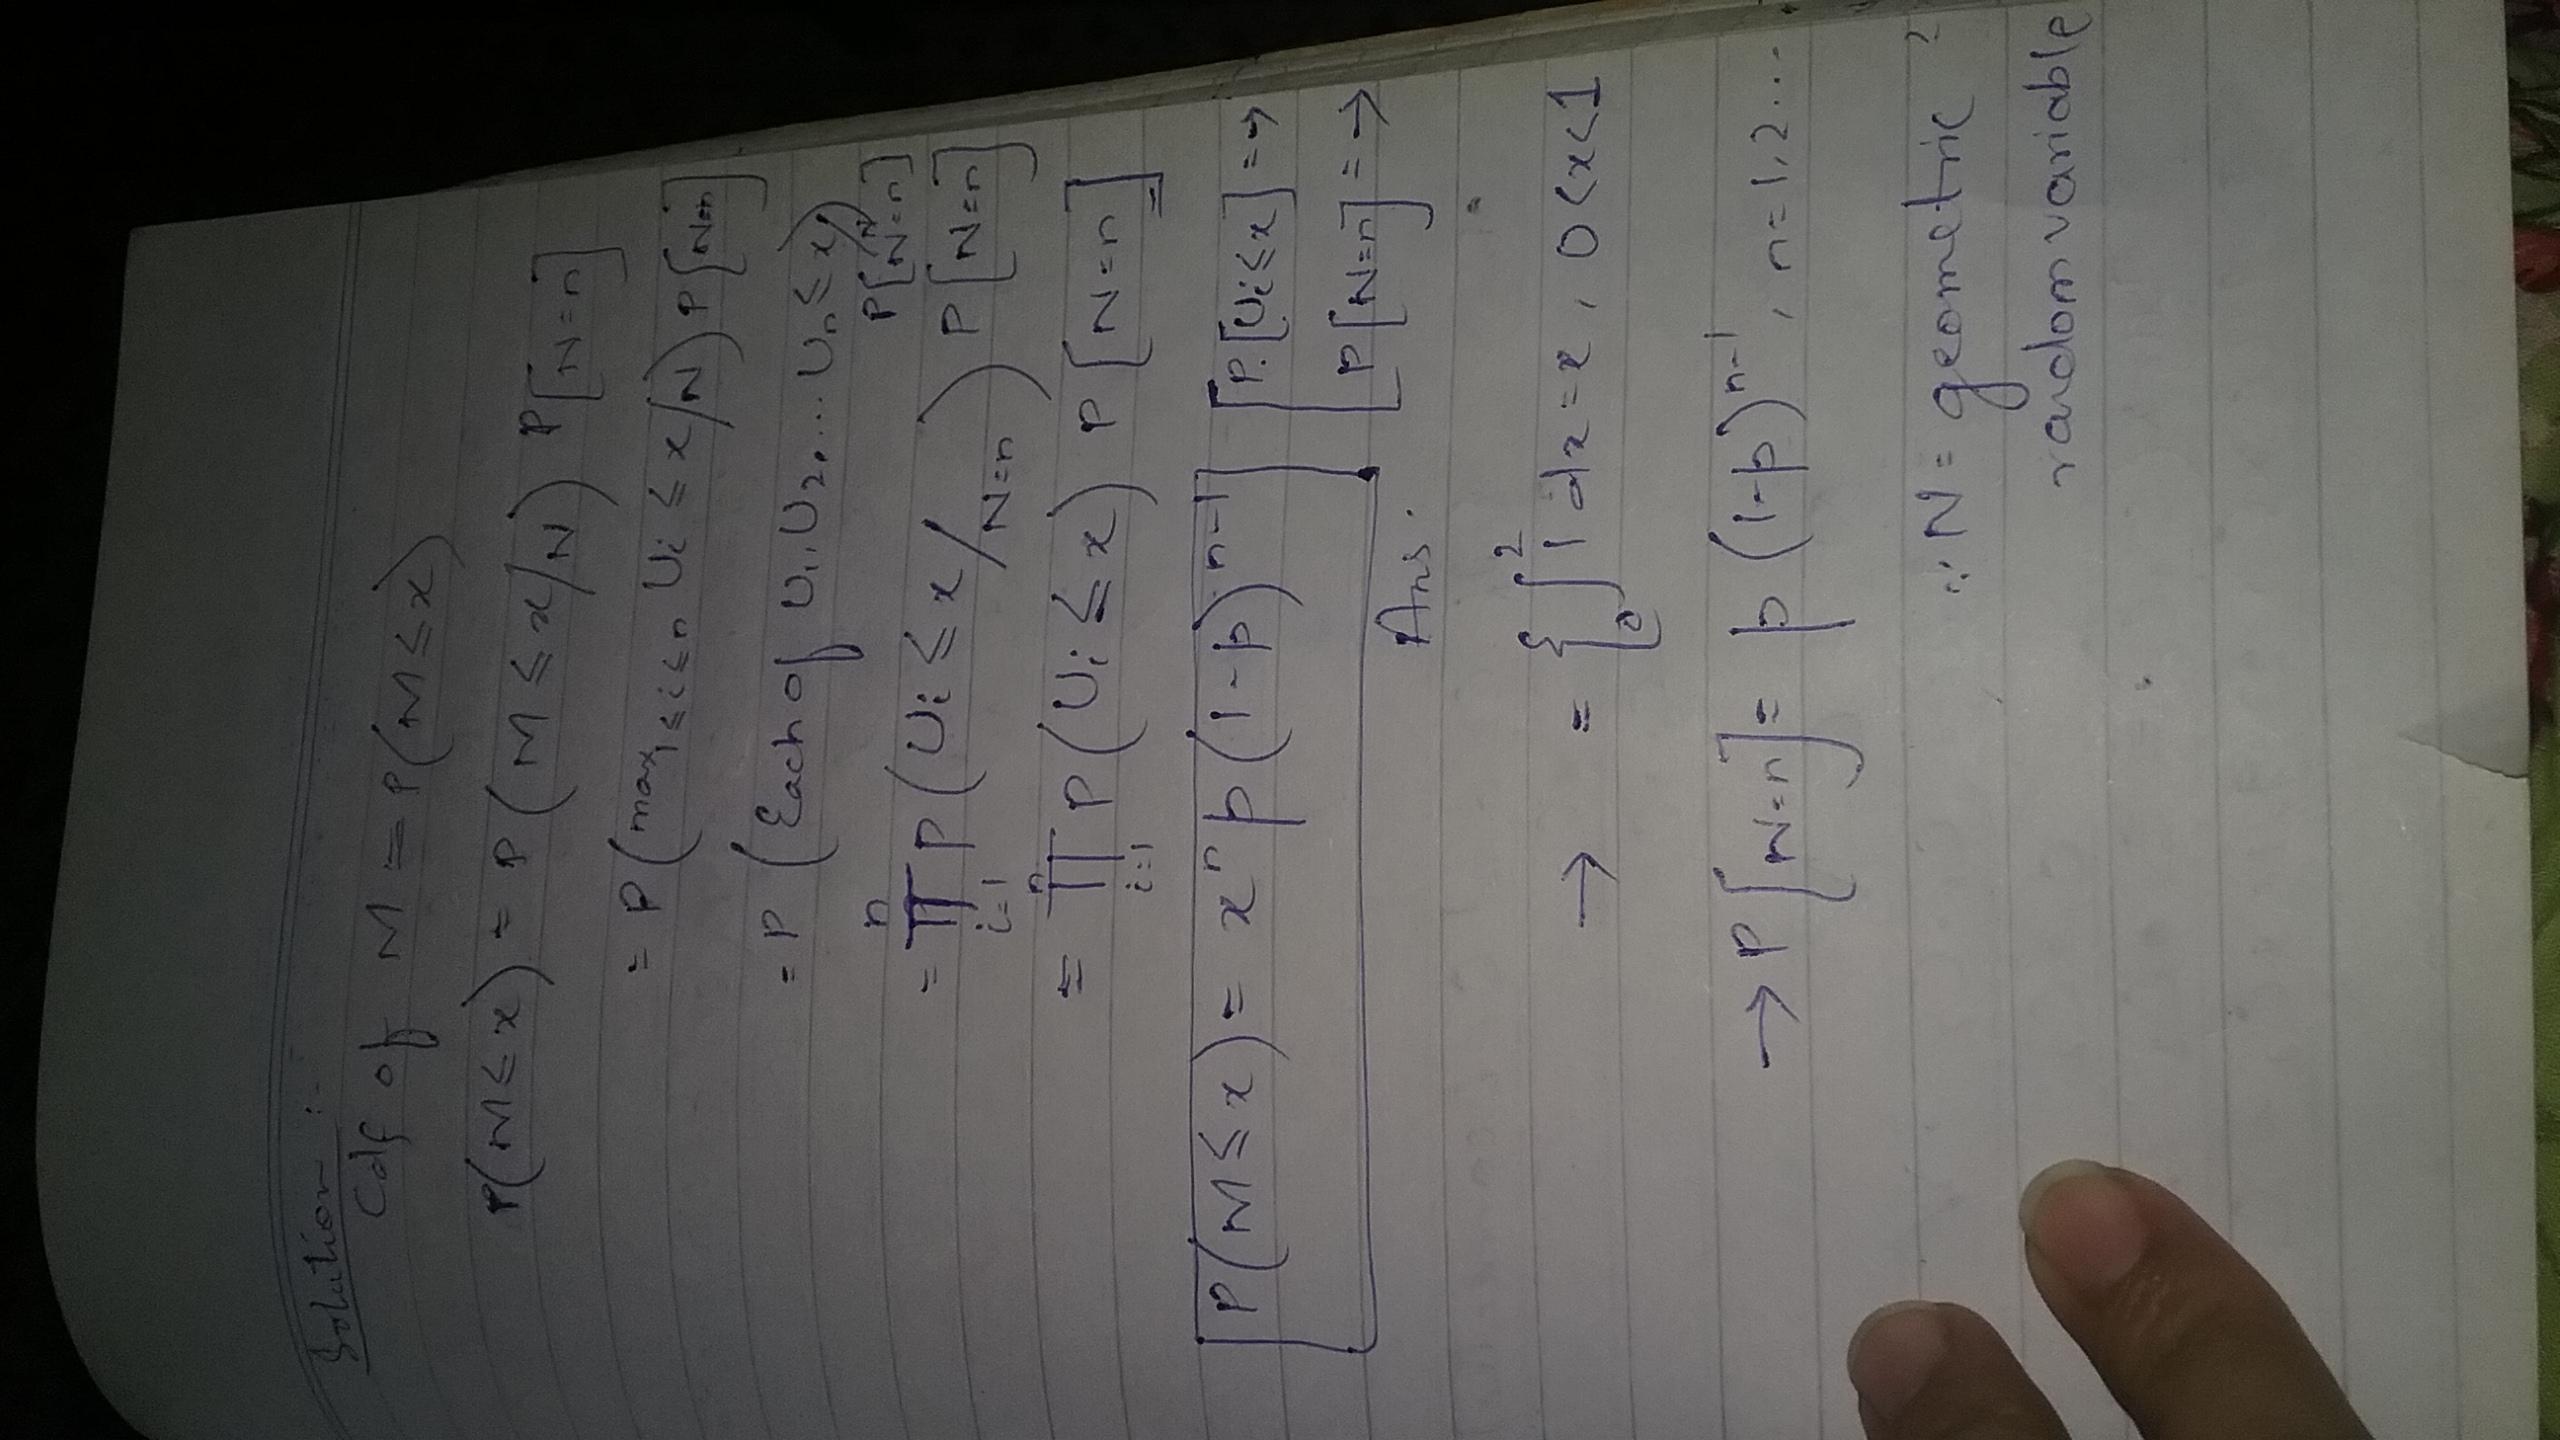 Solution :-
Cdf of M = P(M ≤ x)
P(M ≤ x) = P(M ≤ x/N) P[N=n]
= P(max 1≤i≤n Ui ≤ x/N) P[N=n]
= P(Each of U1, U2, .... Un ≤ x/N) P[N=n]
= ∏_{i=1}^{n} P(Ui ≤ x/N=n) P[N=n]
= ∏_{i=1}^{n} P(Ui ≤ x) P[N=n]
P(M ≤ x) = x^n p(1-p)^{n-1} [P.[Ui ≤ x] = →
P[N=n] = →
Ans.
→ = { ∫_0^2 1 dx = x , 0<x<1
→ P[N=n] = p (1-p)^{n-1} , n=1,2...
∵ N = geometric
random variable